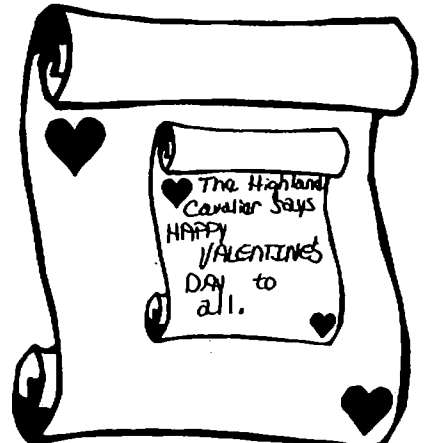 The Highland
Cavalier says
HAPPY
VALENTINE'S
DAY to
all.